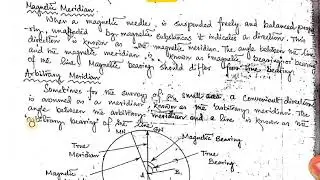 Magnetic Meridian
When a magnetic needle, is suspended freely and balanced
unaffected by magnetic substances it indicates a direction. This
direction is known as magnetic meridian. The angle between the line
and the magnetic meridian is known as magnetic bearing or bearing
of the line. Magnetic bearing should differ from true bearing
Arbitrary Meridian
Sometimes for the survey of small area, a convenient direction
is assumed as a meridian, known as the arbitrary meridian. The
angle between the arbitrary meridian and a line is known as the
arbitrary bearing of the line
MN
Magnetic Bearing
True
Meridian
A
B
True
Bearing
Magnetic